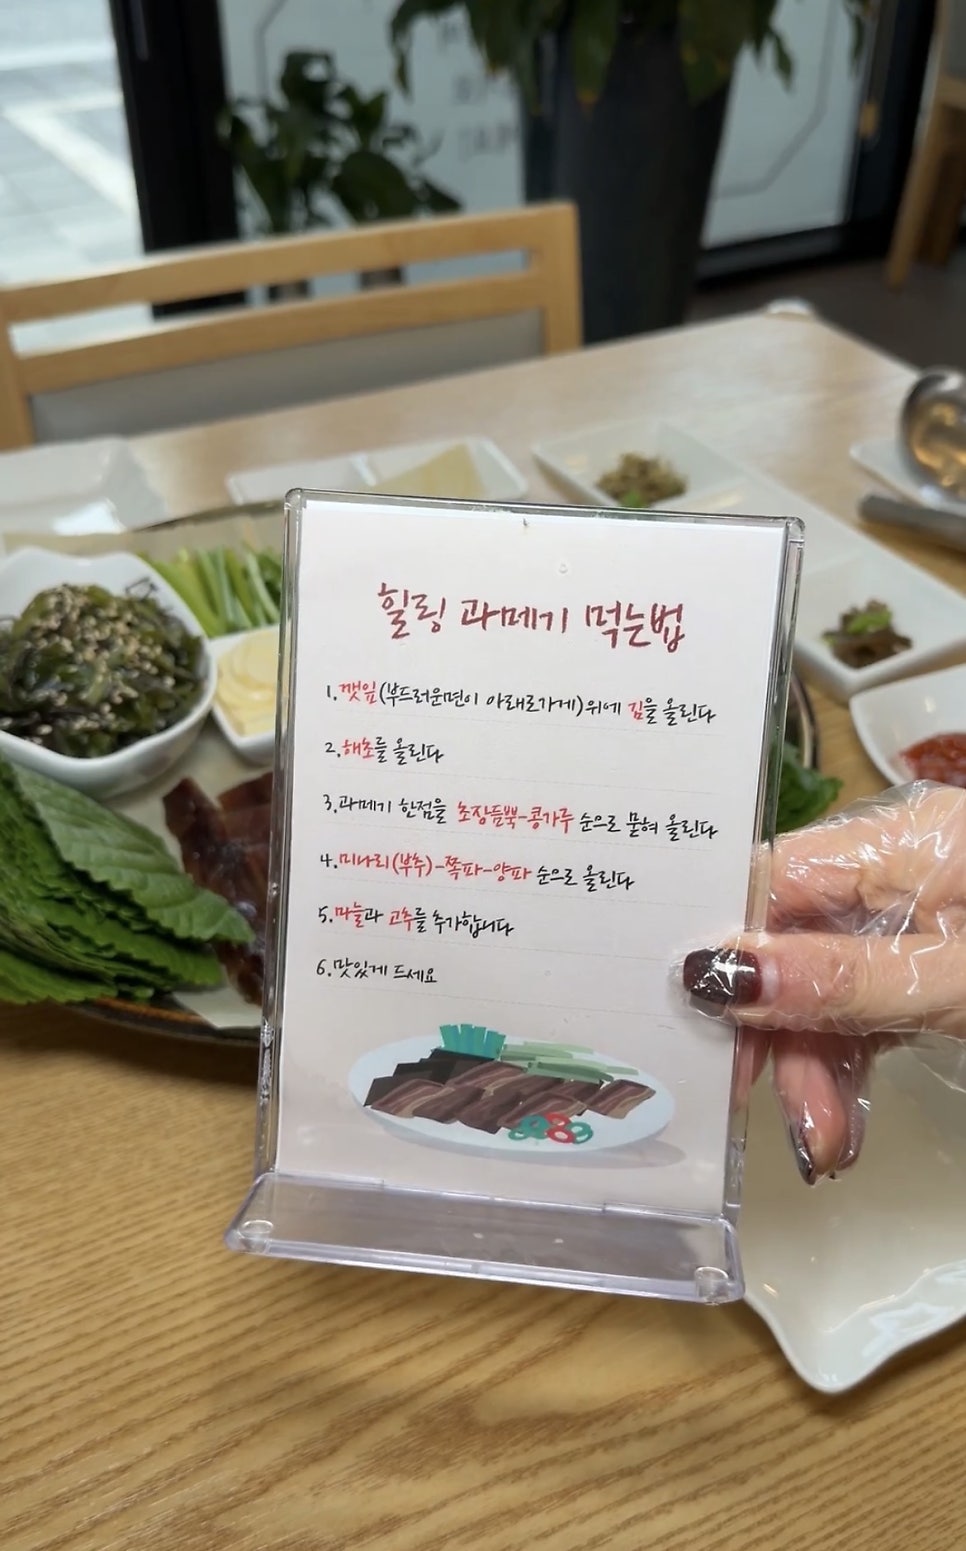 힐링 과메기 먹는법
1.깻잎(부드러운면이 아래로가게)위에 김을 올린다
2.해초를 올린다
3.과메기 한점을 초장듬뿍-콩가루 순으로 묻혀 올린다
4.미나리(부추)-쪽파-양파 순으로 올린다
5.마늘과 고추를 추가합니다
6.맛있게 드세요